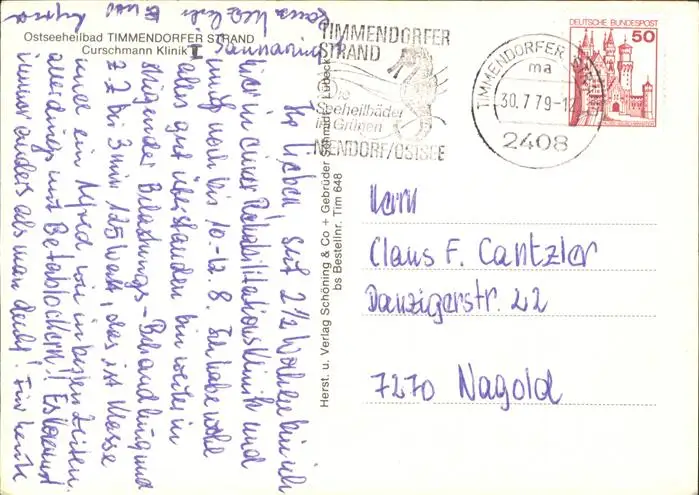 Ostseeheilbad TIMMENDORFER STRAND
Curschmann Klinik I
TIMMENDORFER
STRAND
Die
Seeheilbäder
im Grünen
NIENDORF/OSTSEE
TIMMENDORFER
ma
30.7.79-12
2408
DEUTSCHE BUNDESPOST
50
Herst. u. Verlag Schöning & Co + Gebrüder Schmidt, Lübeck
bs Bestellnr. Tim 648
Herrn
Claus F. Cantzler
Danzigerstr. 22
7270 Nagold
Ihr Lieben, seit 2 1/2 Wochen bin ich
hier in einer Rehabilitationsklinik und
muß noch bis 10.-12. 8. Ich habe wohl
alles gut überstanden bin weiter in
steigender Belastungs-Behandlung und
z.Z. bis 3 min 125 Watt, das ist Klasse
und ein wie in besten Zeiten.
allerdings mit Betablockern!! Es kommt
immer anders als man denkt! Für heute